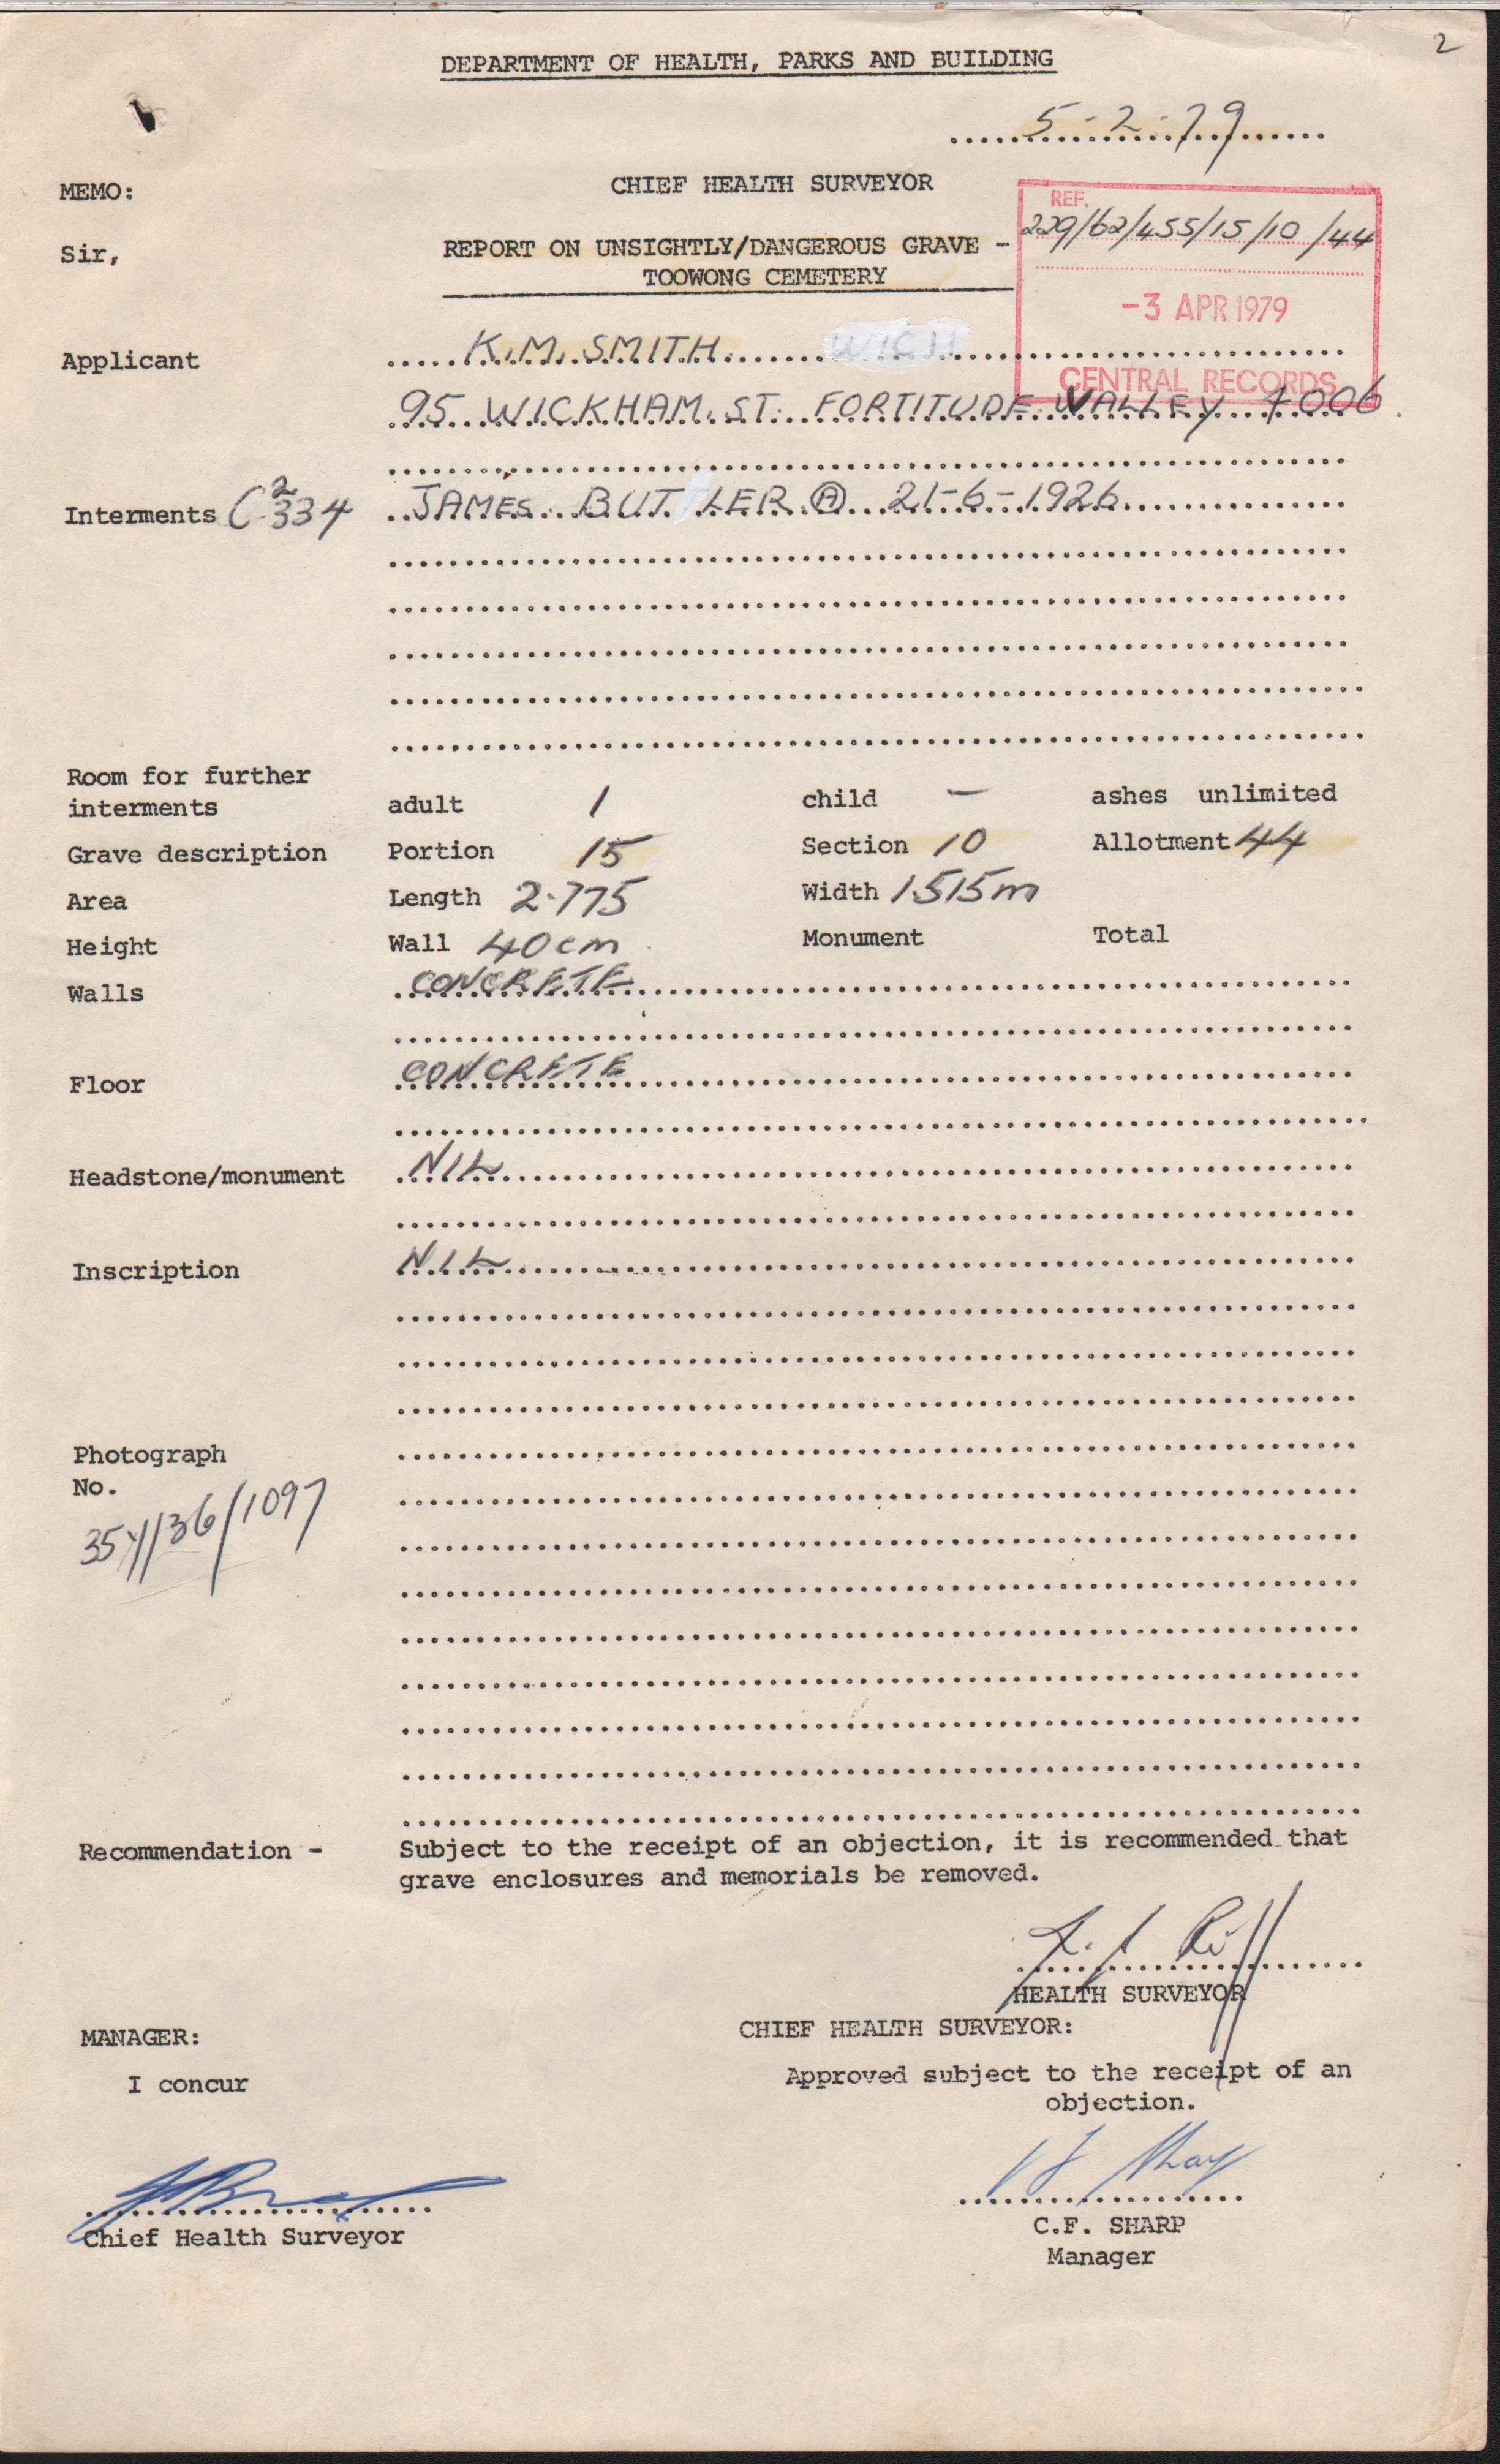 2
DEPARTMENT OF HEALTH, PARKS AND BUILDING
5-2-79
MEMO: CHIEF HEALTH SURVEYOR
REF.
229/62/455/15/10/44
Sir, REPORT ON UNSIGHTLY/DANGEROUS GRAVE -
TOOWONG CEMETERY
-3 APR 1979
CENTRAL RECORDS
Applicant K.M. SMITH
95 WICKHAM ST. FORTITUDE VALLEY 4006
Interments JAMES BUTLER Ⓐ 21-6-1926
Room for further
interments adult 1 child — ashes unlimited
Grave description Portion 15 Section 10 Allotment 44
Area Length 2.775 Width 1.515m
Height Wall 40cm Monument Total
Walls CONCRETE
Floor CONCRETE
Headstone/monument NIL
Inscription NIL
Photograph
No.
Recommendation - Subject to the receipt of an objection, it is recommended that
grave enclosures and memorials be removed.
HEALTH SURVEYOR
MANAGER: CHIEF HEALTH SURVEYOR:
I concur Approved subject to the receipt of an
objection.
Chief Health Surveyor C.F. SHARP
Manager